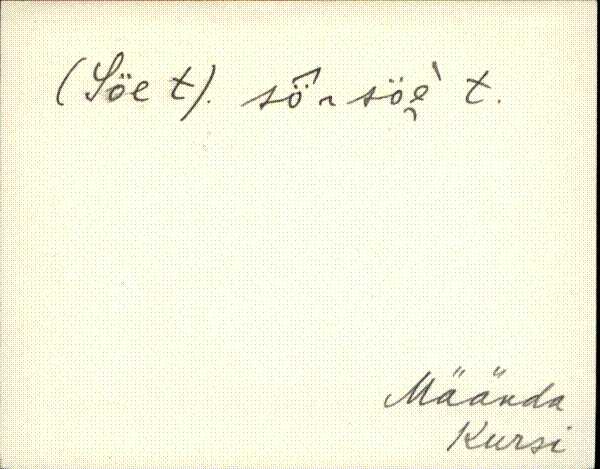 (Söe t). sö̂ ~ söè̯ t.
Mäända
Kursi